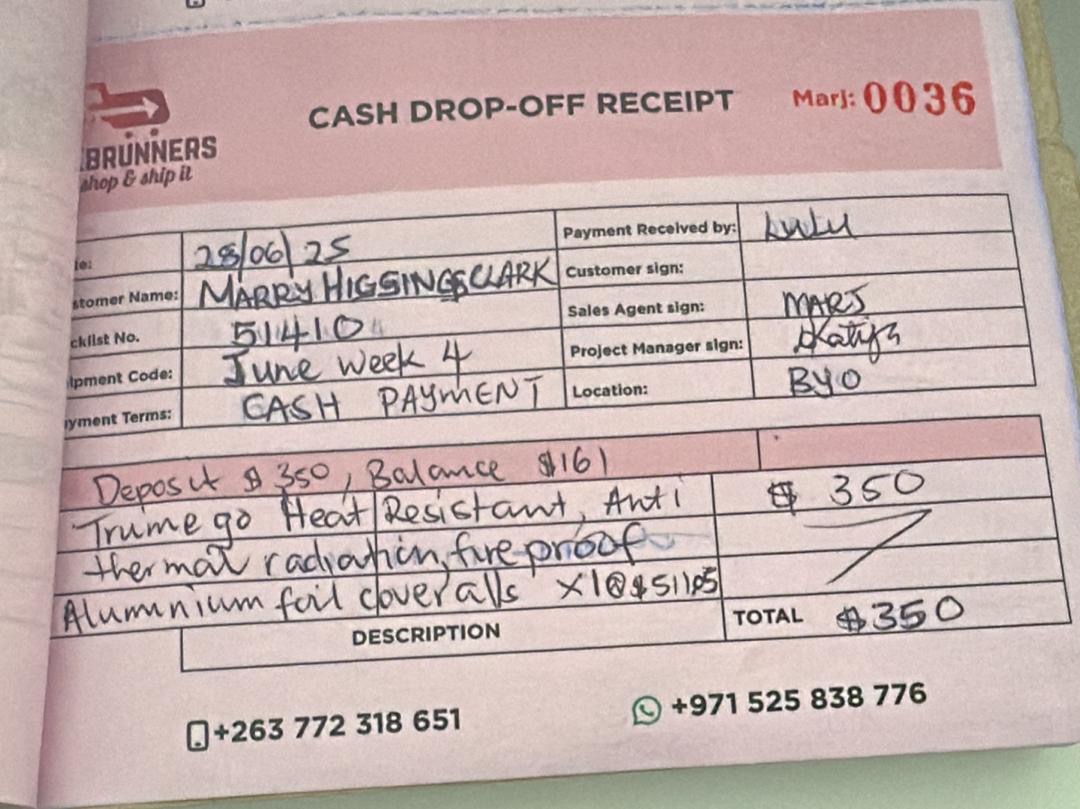 BRUNNERS
shop & ship it
CASH DROP-OFF RECEIPT
Marj: 0036
te: 28/06/25
stomer Name: MARRY HIGGINGSCLARK
cklist No. 51410
ipment Code: June week 4
yment Terms: CASH PAYMENT
Payment Received by: Lulu
Customer sign:
Sales Agent sign: MARJ
Project Manager sign:
Location: BYO
Deposit $ 350, Balance $161
Trumego Heat Resistant, Anti $ 350
thermal radiation, fire proof
Aluminium foil coveralls x1@$511.05
DESCRIPTION TOTAL $350
+263 772 318 651
+971 525 838 776